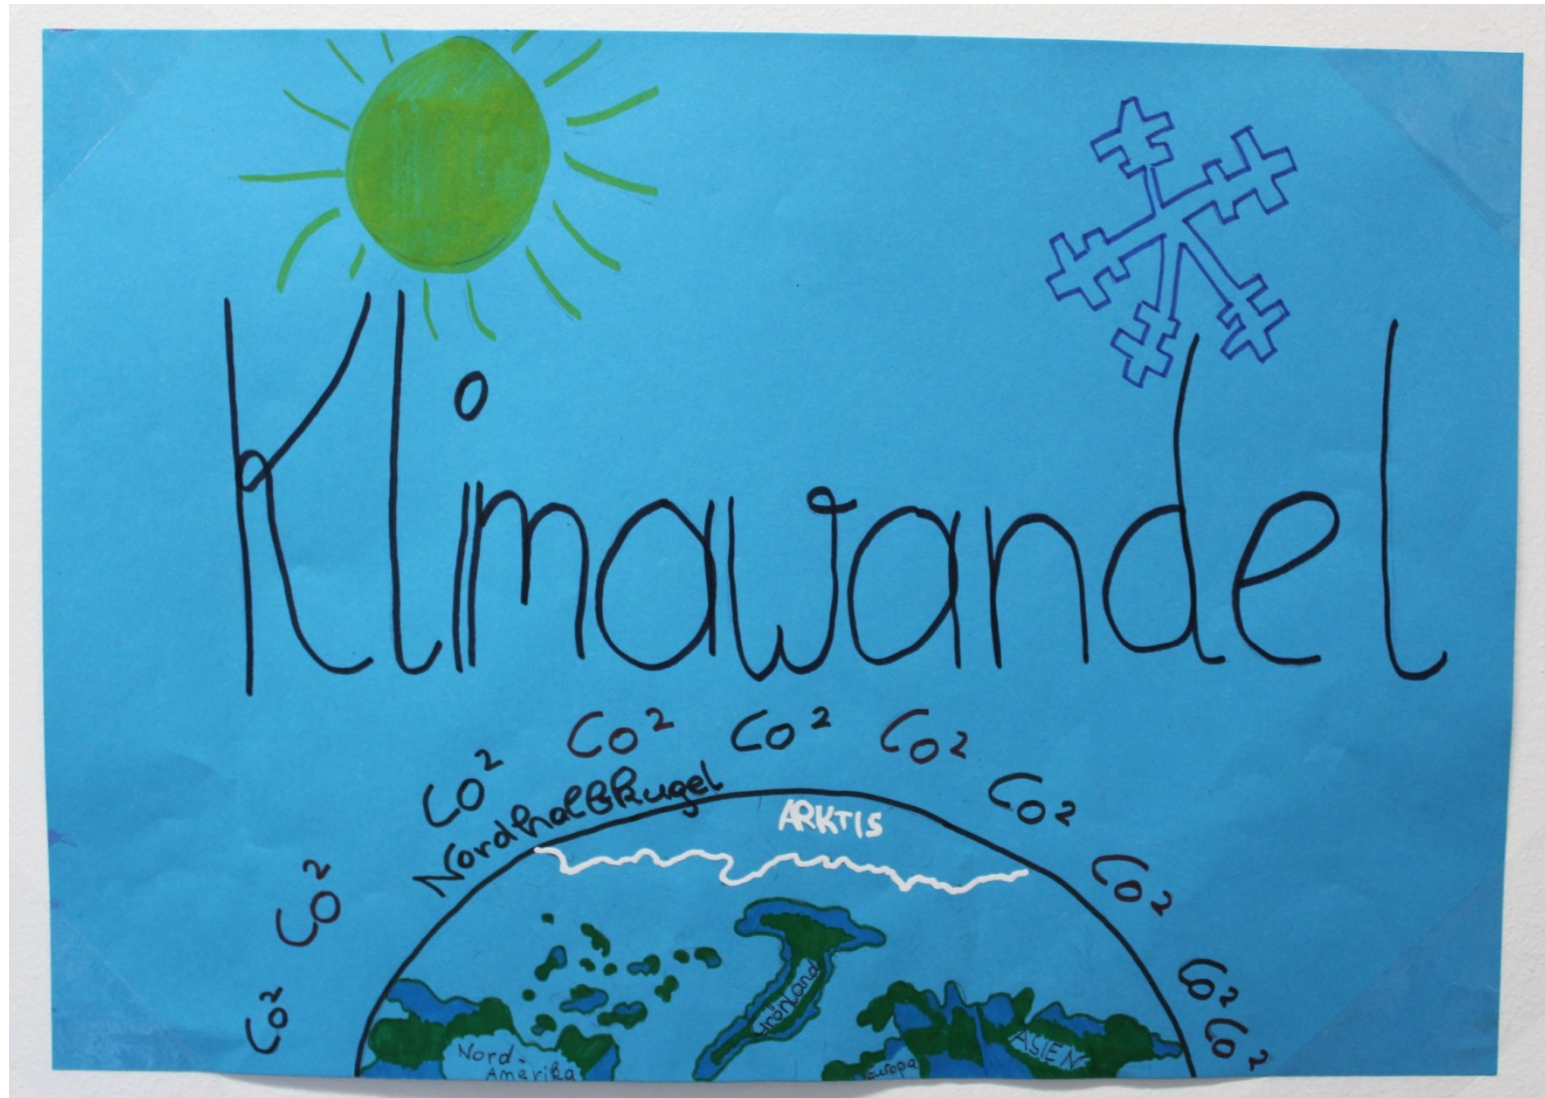 Klimawandel
Co² Co² CO² Co² Co² Co² Co2 Co² Co² Co²
Nordhalbkugel
ARKTIS
Grönland
Nord-
Amerika
Europa
ASIEN